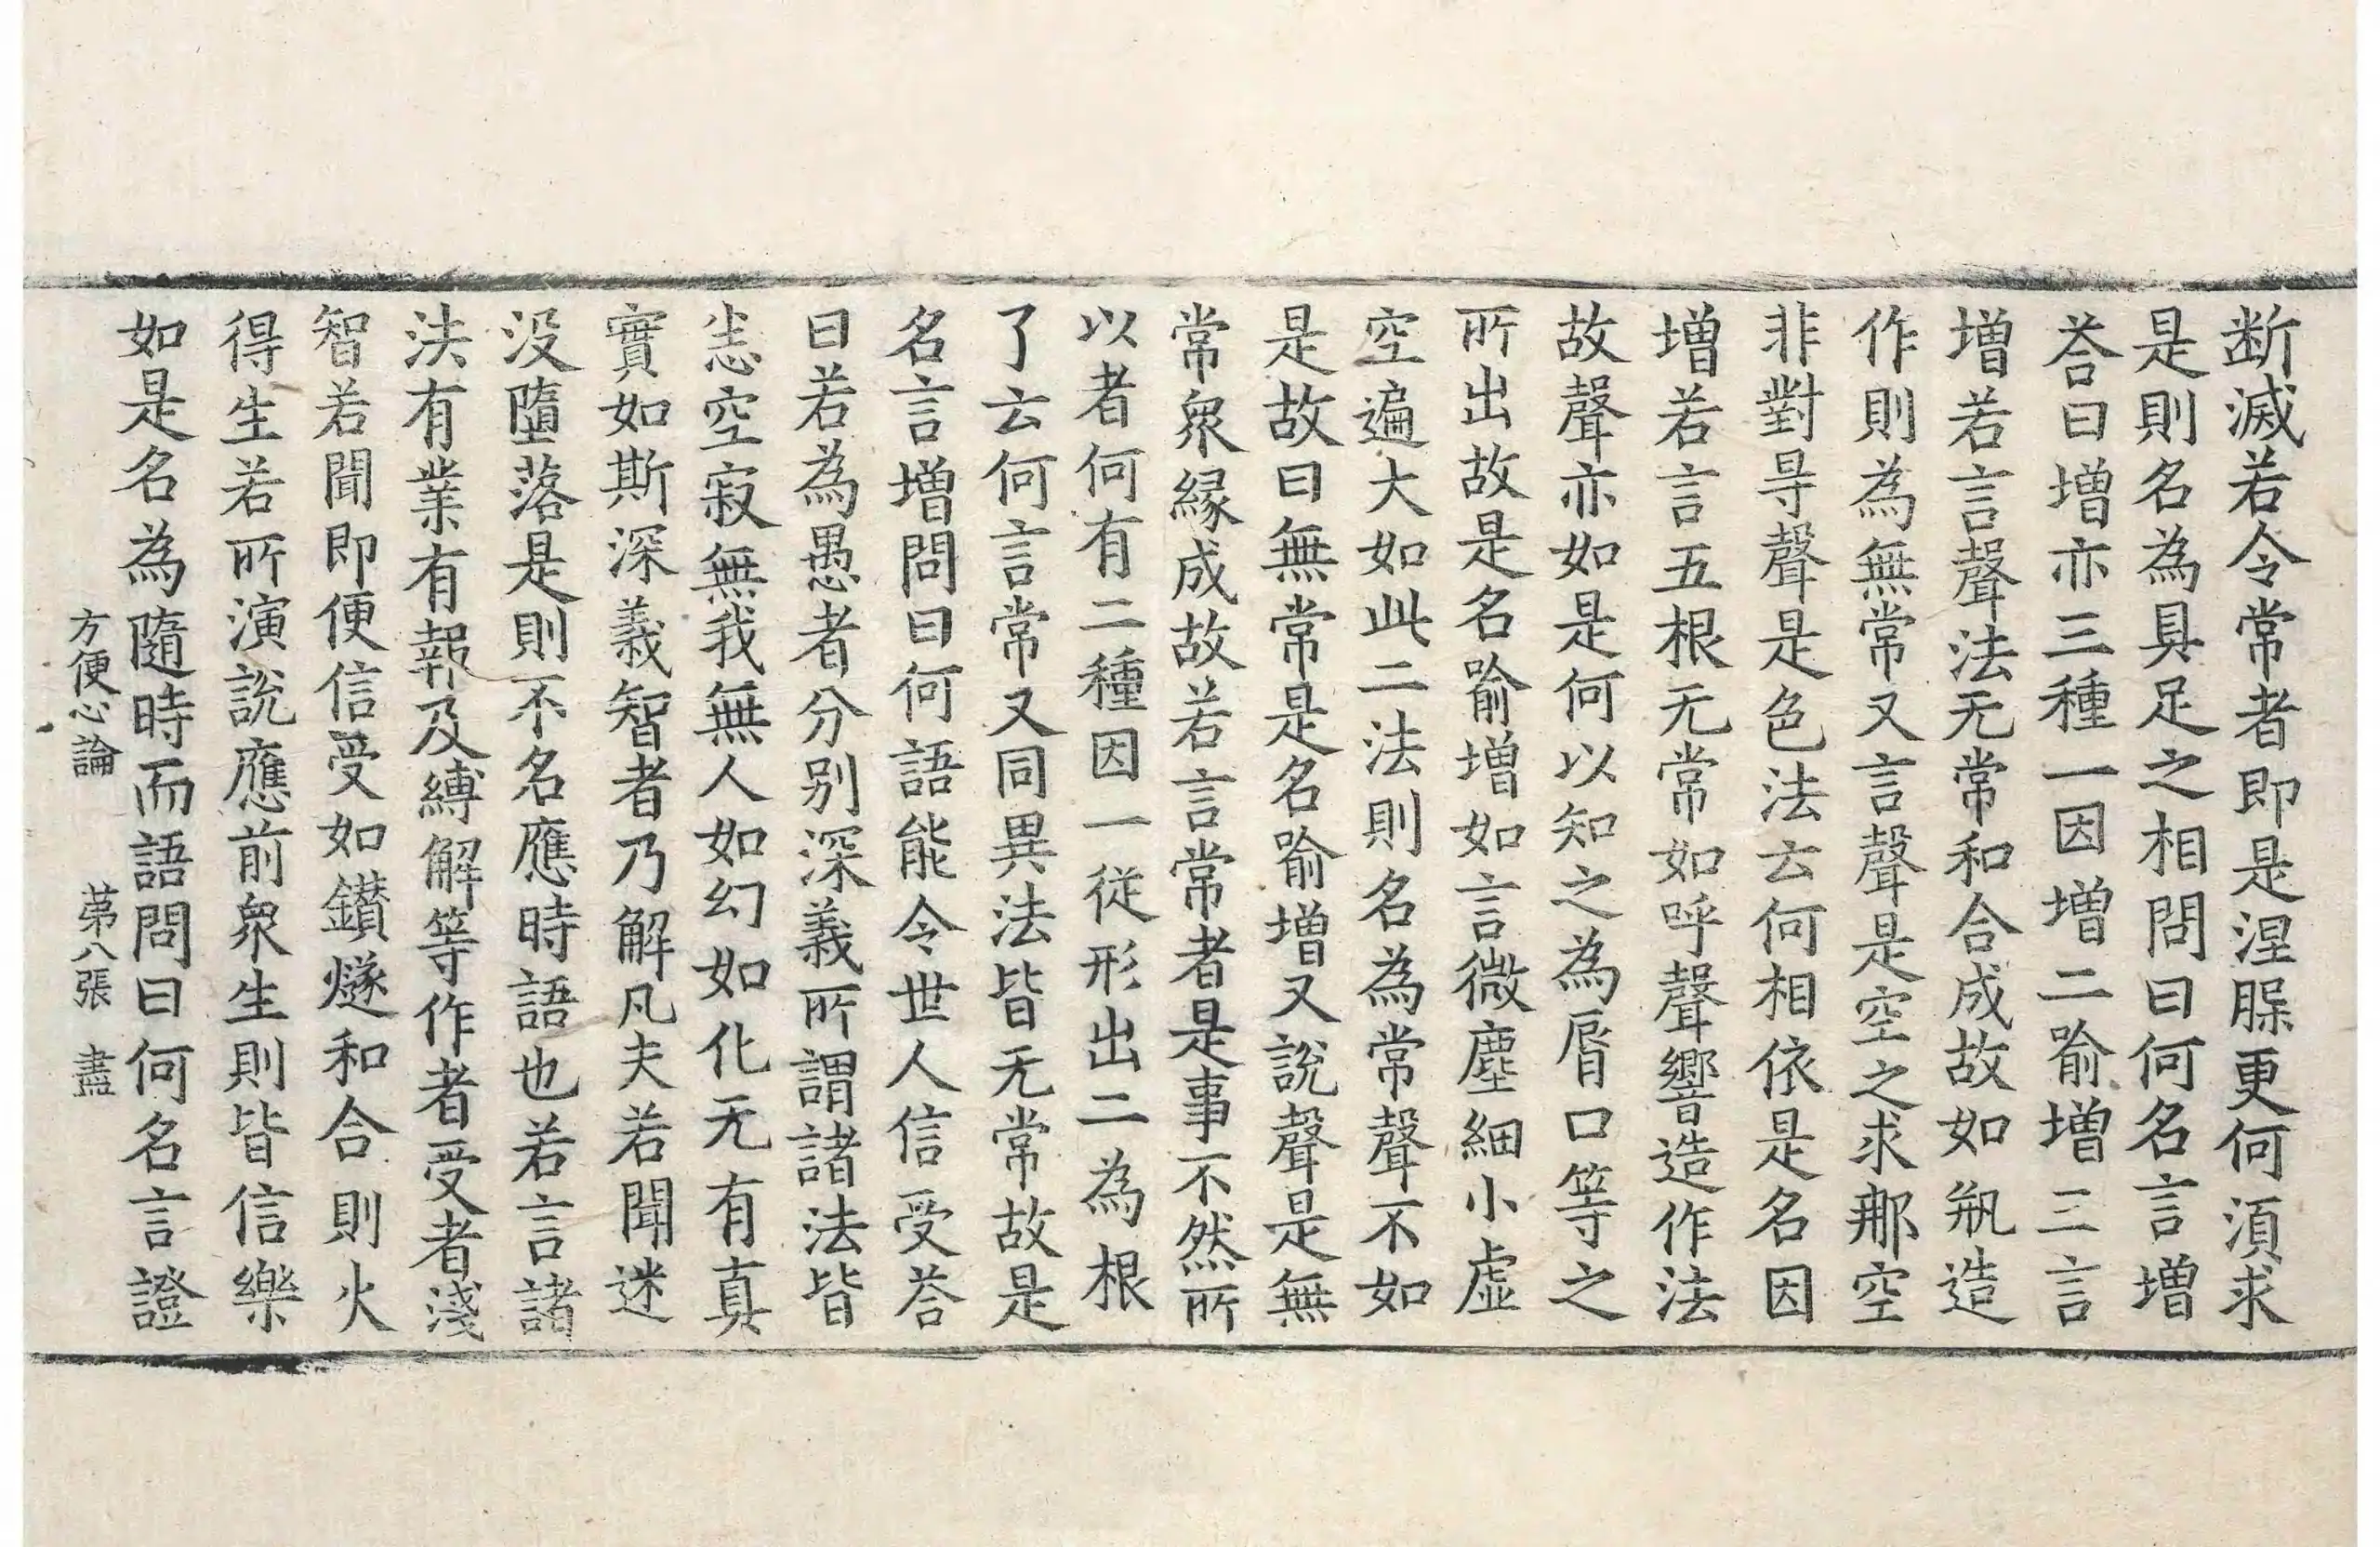 断滅若令常者即是涅槃更何湏求
是則名為具足之相問曰何名言増
荅曰増亦三種一因増二喻増三言
増若言聲法无常和合成故如瓶造
作則為無常又言聲是空之求那空
非對㝵聲是色法云何相依是名因
増若言五根无常如呼聲響造作法
故聲亦如是何以知之為脣口等之
所出故是名喻増如言微塵細小虚
空遍大如此二法則名為常聲不如
是故曰無常是名喻増又説聲是無
常衆縁成故若言常者是事不然所
以者何有二種因一從形出二為根
了云何言常又同異法皆无常故是
名言増問曰何語能令世人信受荅
曰若為愚者分别深義所謂諸法皆
悉空寂無我無人如幻如化无有真
實如斯深義智者乃解凡夫若聞迷
没墮落是則不名應時語也若言諸
法有業有報及縛解等作者受者淺
智若聞即便信受如鑚燧和合則火
得生若所演説應前衆生則皆信樂
如是名為隨時而語問曰何名言證
方便心論 苐八張 盡